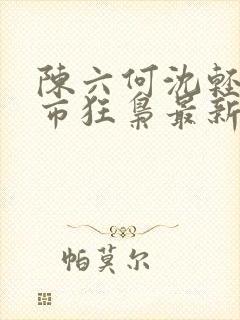 陳六何沈輕
市狂梟最新
帕莫尔